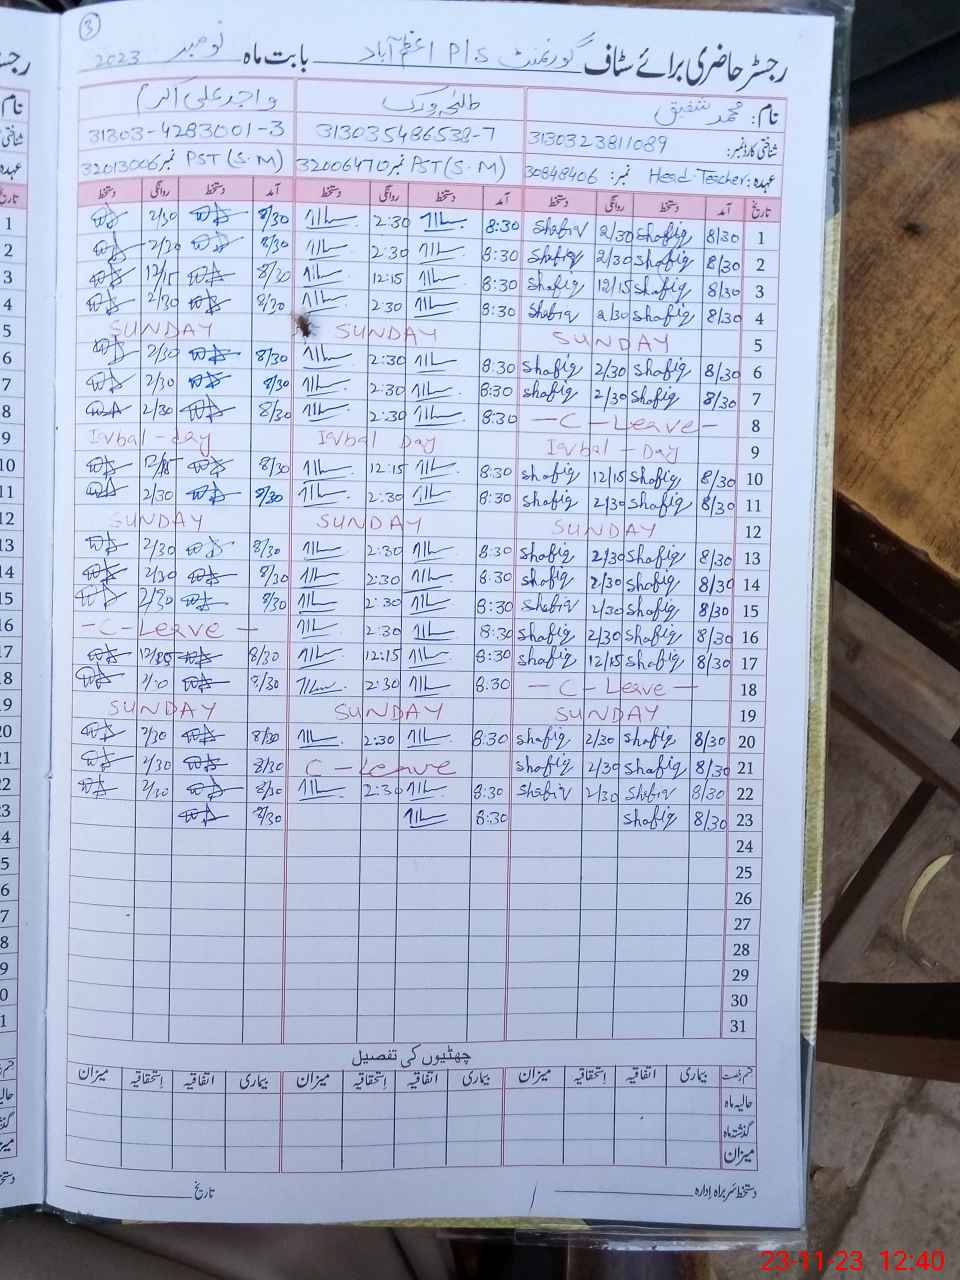 3
رجسٹر حاضری برائے سٹاف گورنمنٹ P/S اعظم آباد بابت ماہ نومبر 2023
نام: محمد شفیق
شناختی کارڈ نمبر: 3130323811089 313035486538-7 31303-4283001-3
عہدہ: Head Teacher نمبر: 30848406 PST (S.M) نمبر 32006470 PST (S.M) نمبر 32013006
تاریخ آمد دستخط روانگی دستخط آمد دستخط روانگی دستخط آمد دستخط روانگی دستخط تاریخ
1 8/30 Shafiq 2/30 Shafiq 8:30 2:30 8/30 2/30 1
2 8/30 Shafiq 2/30 Shafiq 8:30 2:30 8/30 2/20 2
3 8/30 Shafiq 12/15 Shafiq 8:30 12:15 8/30 12/15 3
4 8/30 Shafiq 2/30 Shafiq 8:30 2:30 8/30 2/30 4
5 SUNDAY SUNDAY SUNDAY 5
6 8/30 Shafiq 2/30 Shafiq 8:30 2:30 8/30 2/30 6
7 8/30 Shafiq 2/30 Shafiq 8:30 2:30 8/30 2/30 7
8 - C - Leave - 8:30 2:30 8/30 2/30 8
9 Iqbal - Day Iqbal Day Iqbal - day 9
10 8/30 Shafiq 12/15 Shafiq 8:30 12:15 8/30 12/15 10
11 8/30 Shafiq 2/30 Shafiq 8:30 2:30 8/30 2/30 11
12 SUNDAY SUNDAY SUNDAY 12
13 8/30 Shafiq 2/30 Shafiq 8:30 2:30 8/30 2/30 13
14 8/30 Shafiq 2/30 Shafiq 8:30 2:30 8/30 2/30 14
15 8/30 Shafiq 2/30 Shafiq 8:30 2:30 8/30 2/30 15
16 8/30 Shafiq 2/30 Shafiq 8:30 2:30 - C - Leave - 16
17 8/30 Shafiq 12/15 Shafiq 8:30 12:15 8/30 12/15 17
18 - C - Leave - 8:30 2:30 8/30 18
19 SUNDAY SUNDAY SUNDAY 19
20 8/30 Shafiq 2/30 Shafiq 8:30 2:30 8/30 2/30 20
21 8/30 Shafiq 2/30 Shafiq C - Leave 8/30 2/30 21
22 8/30 Shafiq 2/30 Shafiq 8:30 2:30 8/30 2/30 22
23 8/30 Shafiq 8:30 8/30 23
24
25
26
27
28
29
30
31
چھٹیوں کی تفصیل
قسم رخصت بیماری اتفاقیہ استحقاقیہ میزان بیماری اتفاقیہ استحقاقیہ میزان بیماری اتفاقیہ استحقاقیہ میزان
حالیہ ماہ
گذشتہ ماہ
میزان
دستخط سربراہ ادارہ تاریخ
23-11-23 12:40